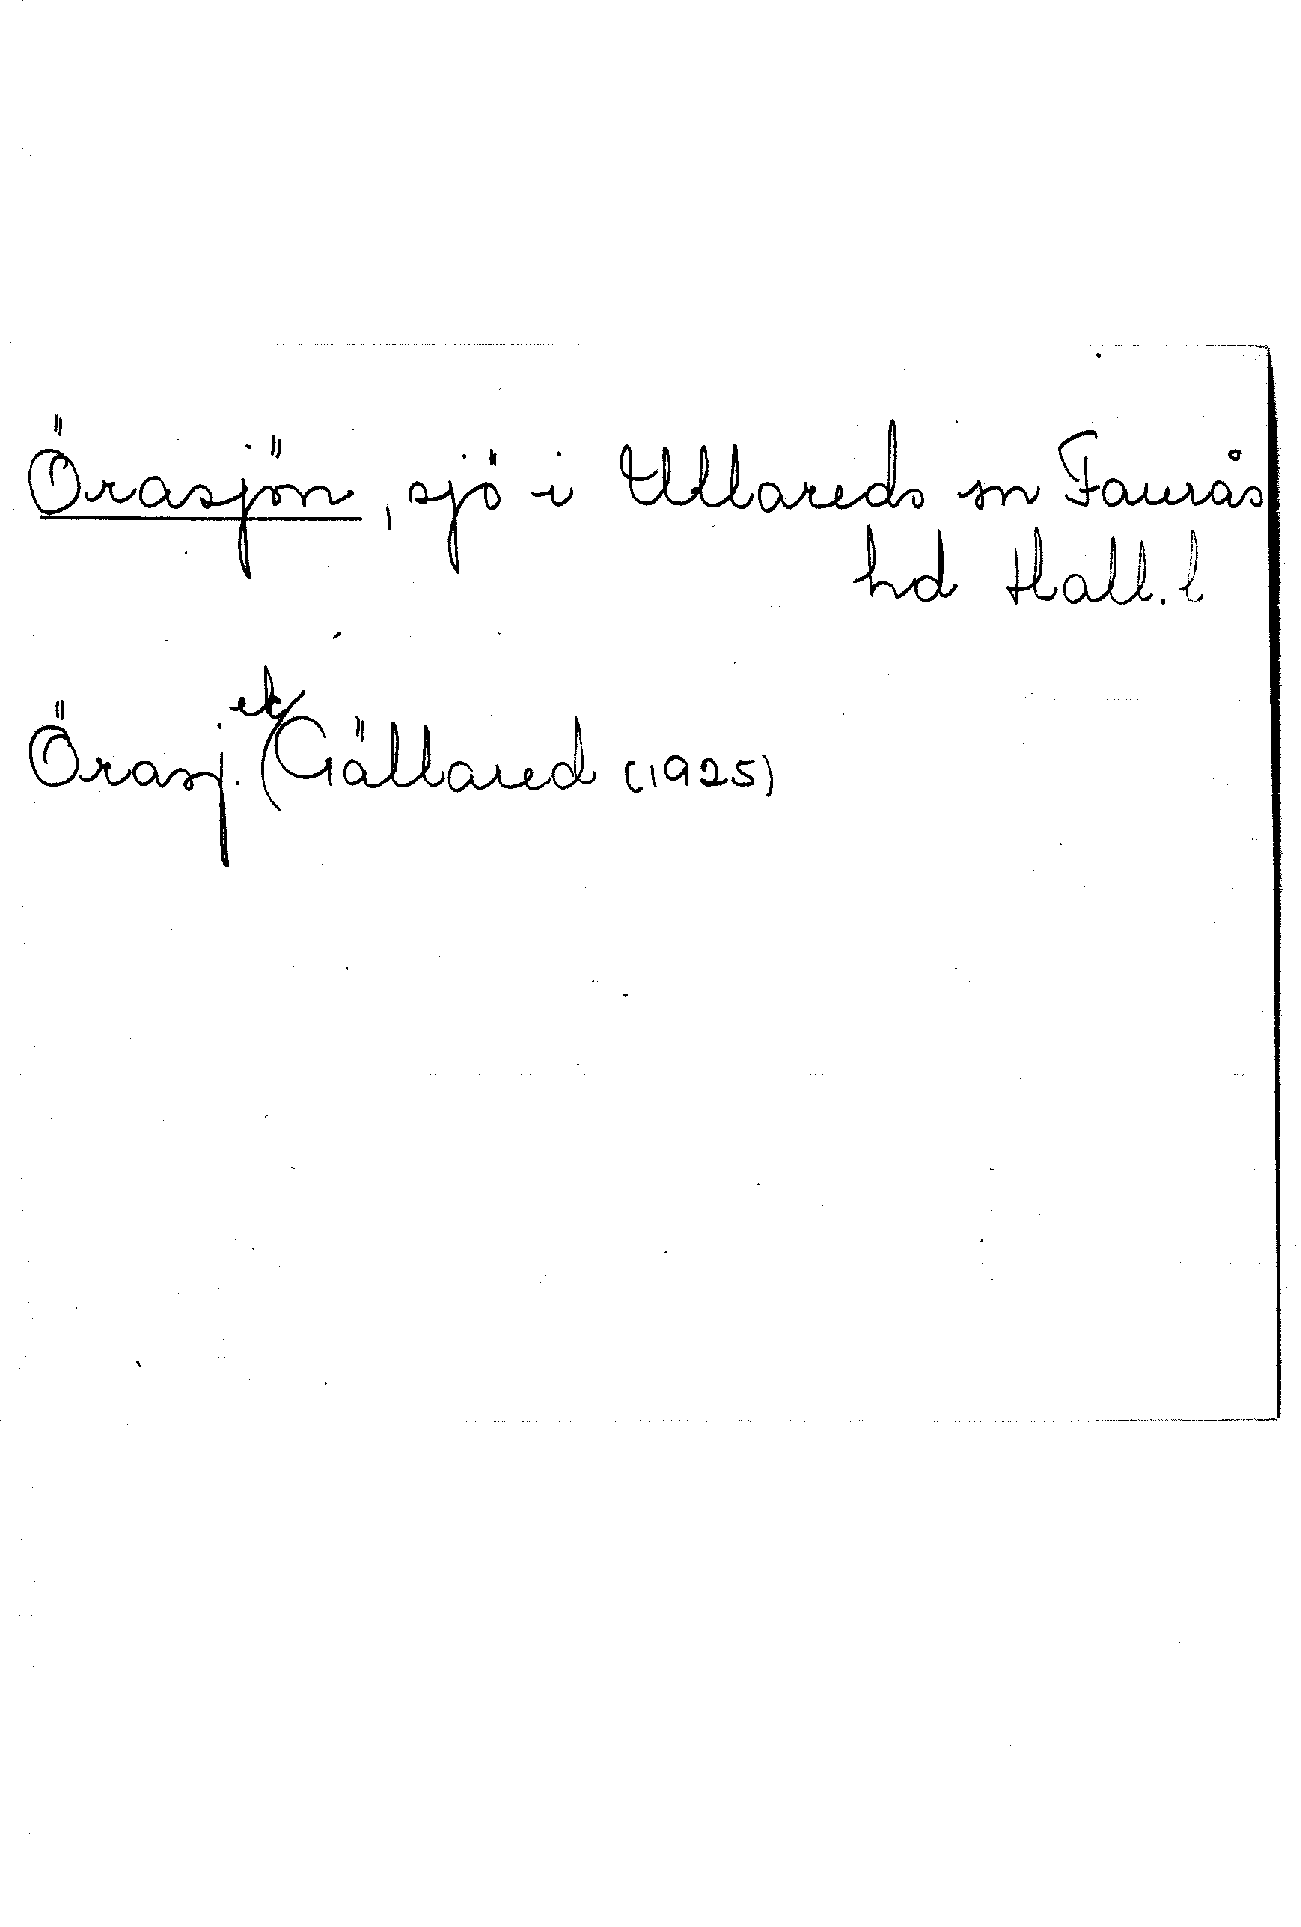 Örasjön, sjö i Ullareds sn Faurås
hd Hall. l
Örasj. ek (Gällared (1925)